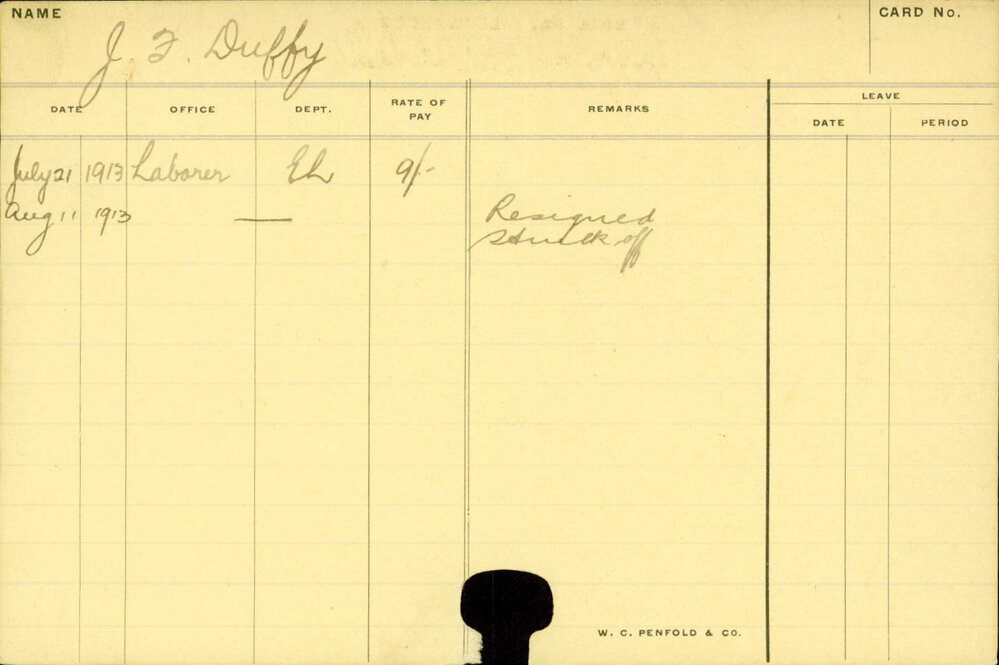 NAME
J. F. Duffy
CARD No.
DATE OFFICE DEPT. RATE OF PAY REMARKS LEAVE
DATE PERIOD
July 21 1913 Laborer 9/-
Aug 11 1913 — Resigned
Struck off
W. C. PENFOLD & CO.